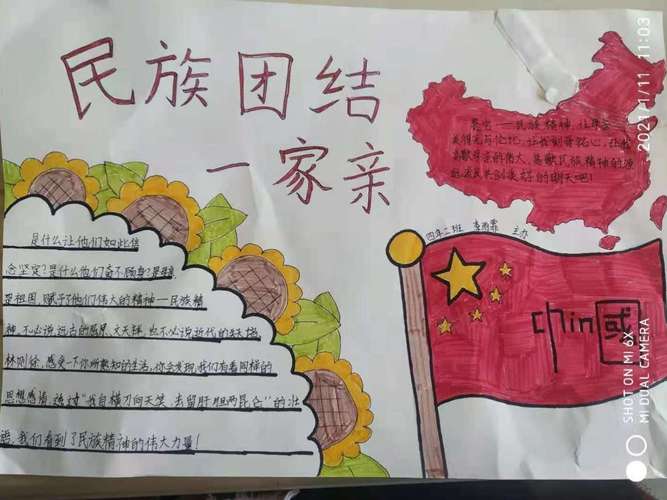 民族团结
一家亲
弘扬民族精神，让
心，让我
伟大，是我民族精神的源
美好的明天吧！
四年二班 李雨霏 主办
chin国
是什么让他们如此信
念坚定？是什么他们奋不顾身？是
是祖国，赋予了他们伟大的精神—民族精
神，不必说远古的屈原、文天祥，也不必说近代的
林则徐，感受一下你所熟知的生活，你会发现，我们有着同样的
思想感情，读读“我自横刀向天笑，去留肝胆两昆仑”的壮
语，我们看到了民族精神的伟大力量！
2021/1/11 11:03
SHOT ON MI 6X
MI DUAL CAMERA